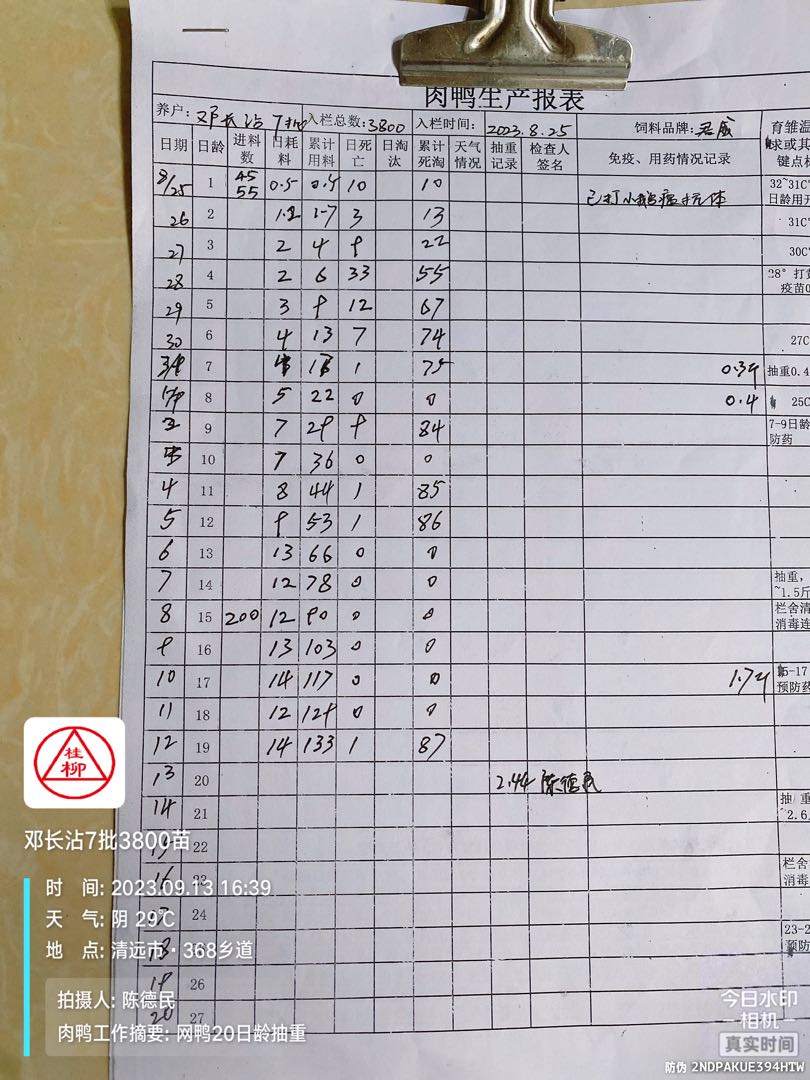 肉鸭生产报表
养户: 邓长沾7批 入栏总数:3800 入栏时间: 2023.8.25 饲料品牌: 育雏温
日期 日龄 进料数 日耗料 累计用料 日死亡 日淘汰 累计死淘 天气情况 抽重记录 检查人签名 免疫、用药情况记录 求或其 键点标
8/25 1 45 55 0.5 0.5 10 10 32~31C° 日龄用开
26 2 1.2 1.7 3 13 31C°
27 3 2 4 9 22 30C°
28 4 2 6 33 55 28° 打 疫苗0
29 5 3 9 12 67
30 6 4 13 7 74 27C
7 1 75 0.3斤 抽重0.4
8 5 22 0 0 0.4 25C
9 7 29 9 84 7-9日龄 防药
10 7 36 0 0
4 11 8 44 1 85
5 12 9 53 1 86
6 13 13 66 0 0
7 14 12 78 0 0 抽重, ~1.5斤
8 15 200 12 90 0 0 栏舍清 消毒连
9 16 13 103 0 0
10 17 14 117 0 0 1.7斤 15-17 预防药
11 18 12 129 0 0
12 19 14 133 1 87
13 20 2.44 陈德民
14 21 抽 重 ~2.6
22
16 23 栏舍 消毒
24
18 23-2 预防
19 26
20 27
桂柳
邓长沾7批3800苗
时 间: 2023.09.13 16:39
天 气: 阴 29℃
地 点: 清远市·368乡道
拍摄人: 陈德民
肉鸭工作摘要: 网鸭20日龄抽重
今日水印
相机
真实时间
防伪 2NDPAKUE394HTW